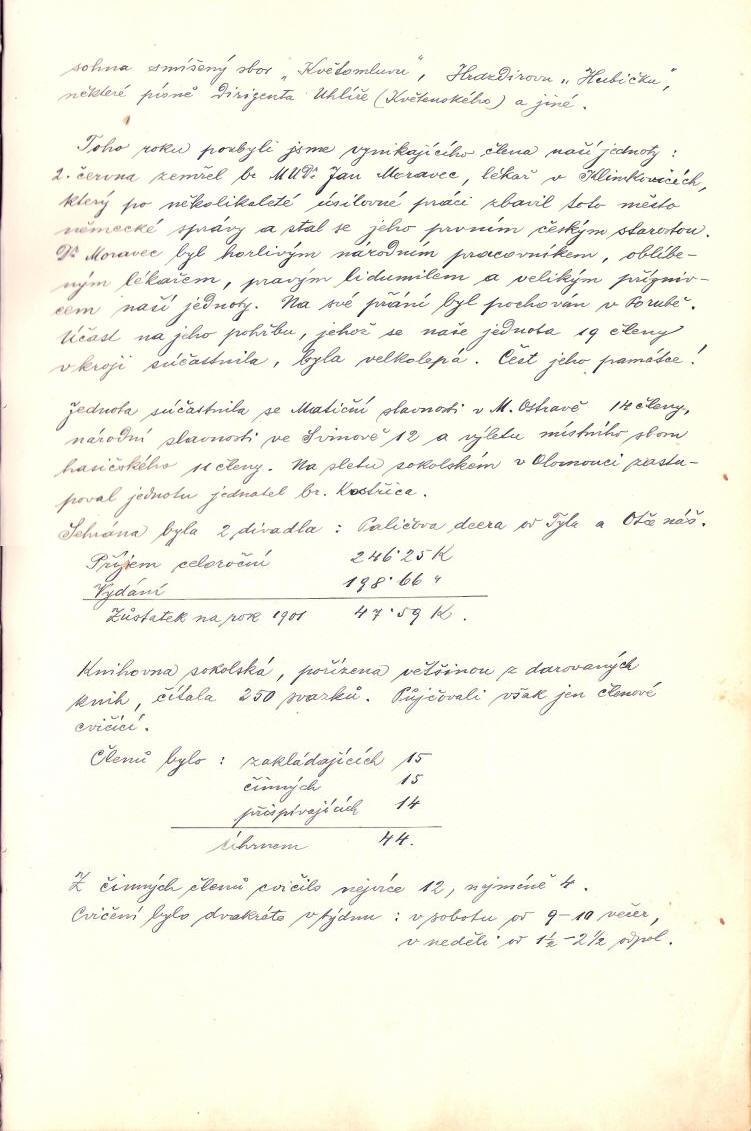 sohna smíšený sbor „Květomluvu", Hrdzdirovu „Hubičku",
některé písně dirigenta Uhlíře (Květenského) a jiné.
Toho roku pozbyli jsme vynikajícího člena naší jednoty:
2. června zemřel br. MUDr Jan Moravec, lékař v Klimkovicích,
který po několikaleté úsilovné práci zbavil toto město
německé správy a stal se jeho prvním českým starostou.
Dr Moravec byl horlivým národním pracovníkem, oblíbe-
ným lékařem, pravým lidumilem a velikým přízniv-
cem naší jednoty. Na své přání byl pochován v Porubě.
Účast na jeho pohřbu, jehož se naše jednota 19 členy
v kroji súčastnila, byla velkolepá. Čest jeho památce!
Jednota súčastnila se Matiční slavnosti v M. Ostravě 14 členy,
národní slavnosti ve Svinově 12 a výletu místního sboru
hasičského 11 členy. Na sletu sokolském v Olomouci zastu-
poval jednotu jednatel br. Kostřica.
Sehrána byla 2 divadla: Paličova dcera od Tyla a Otče náš.
Příjem celoroční 246·25 K
Vydání 198·66 "
Zůstatek na rok 1901 47·59 K.
Knihovna sokolská, pořízena většinou z darovaných
knih, čítala 250 svazků. Půjčovali však jen členové
cvičící.
Členů bylo: zakládajících 15
činných 15
přispívajících 14
úhrnem 44.
Z činných členů cvičilo nejvíce 12, nejméně 4.
Cvičení bylo dvakráte v týdnu: v sobotu od 9–10 večer,
v neděli od 1½–2½ odpol.